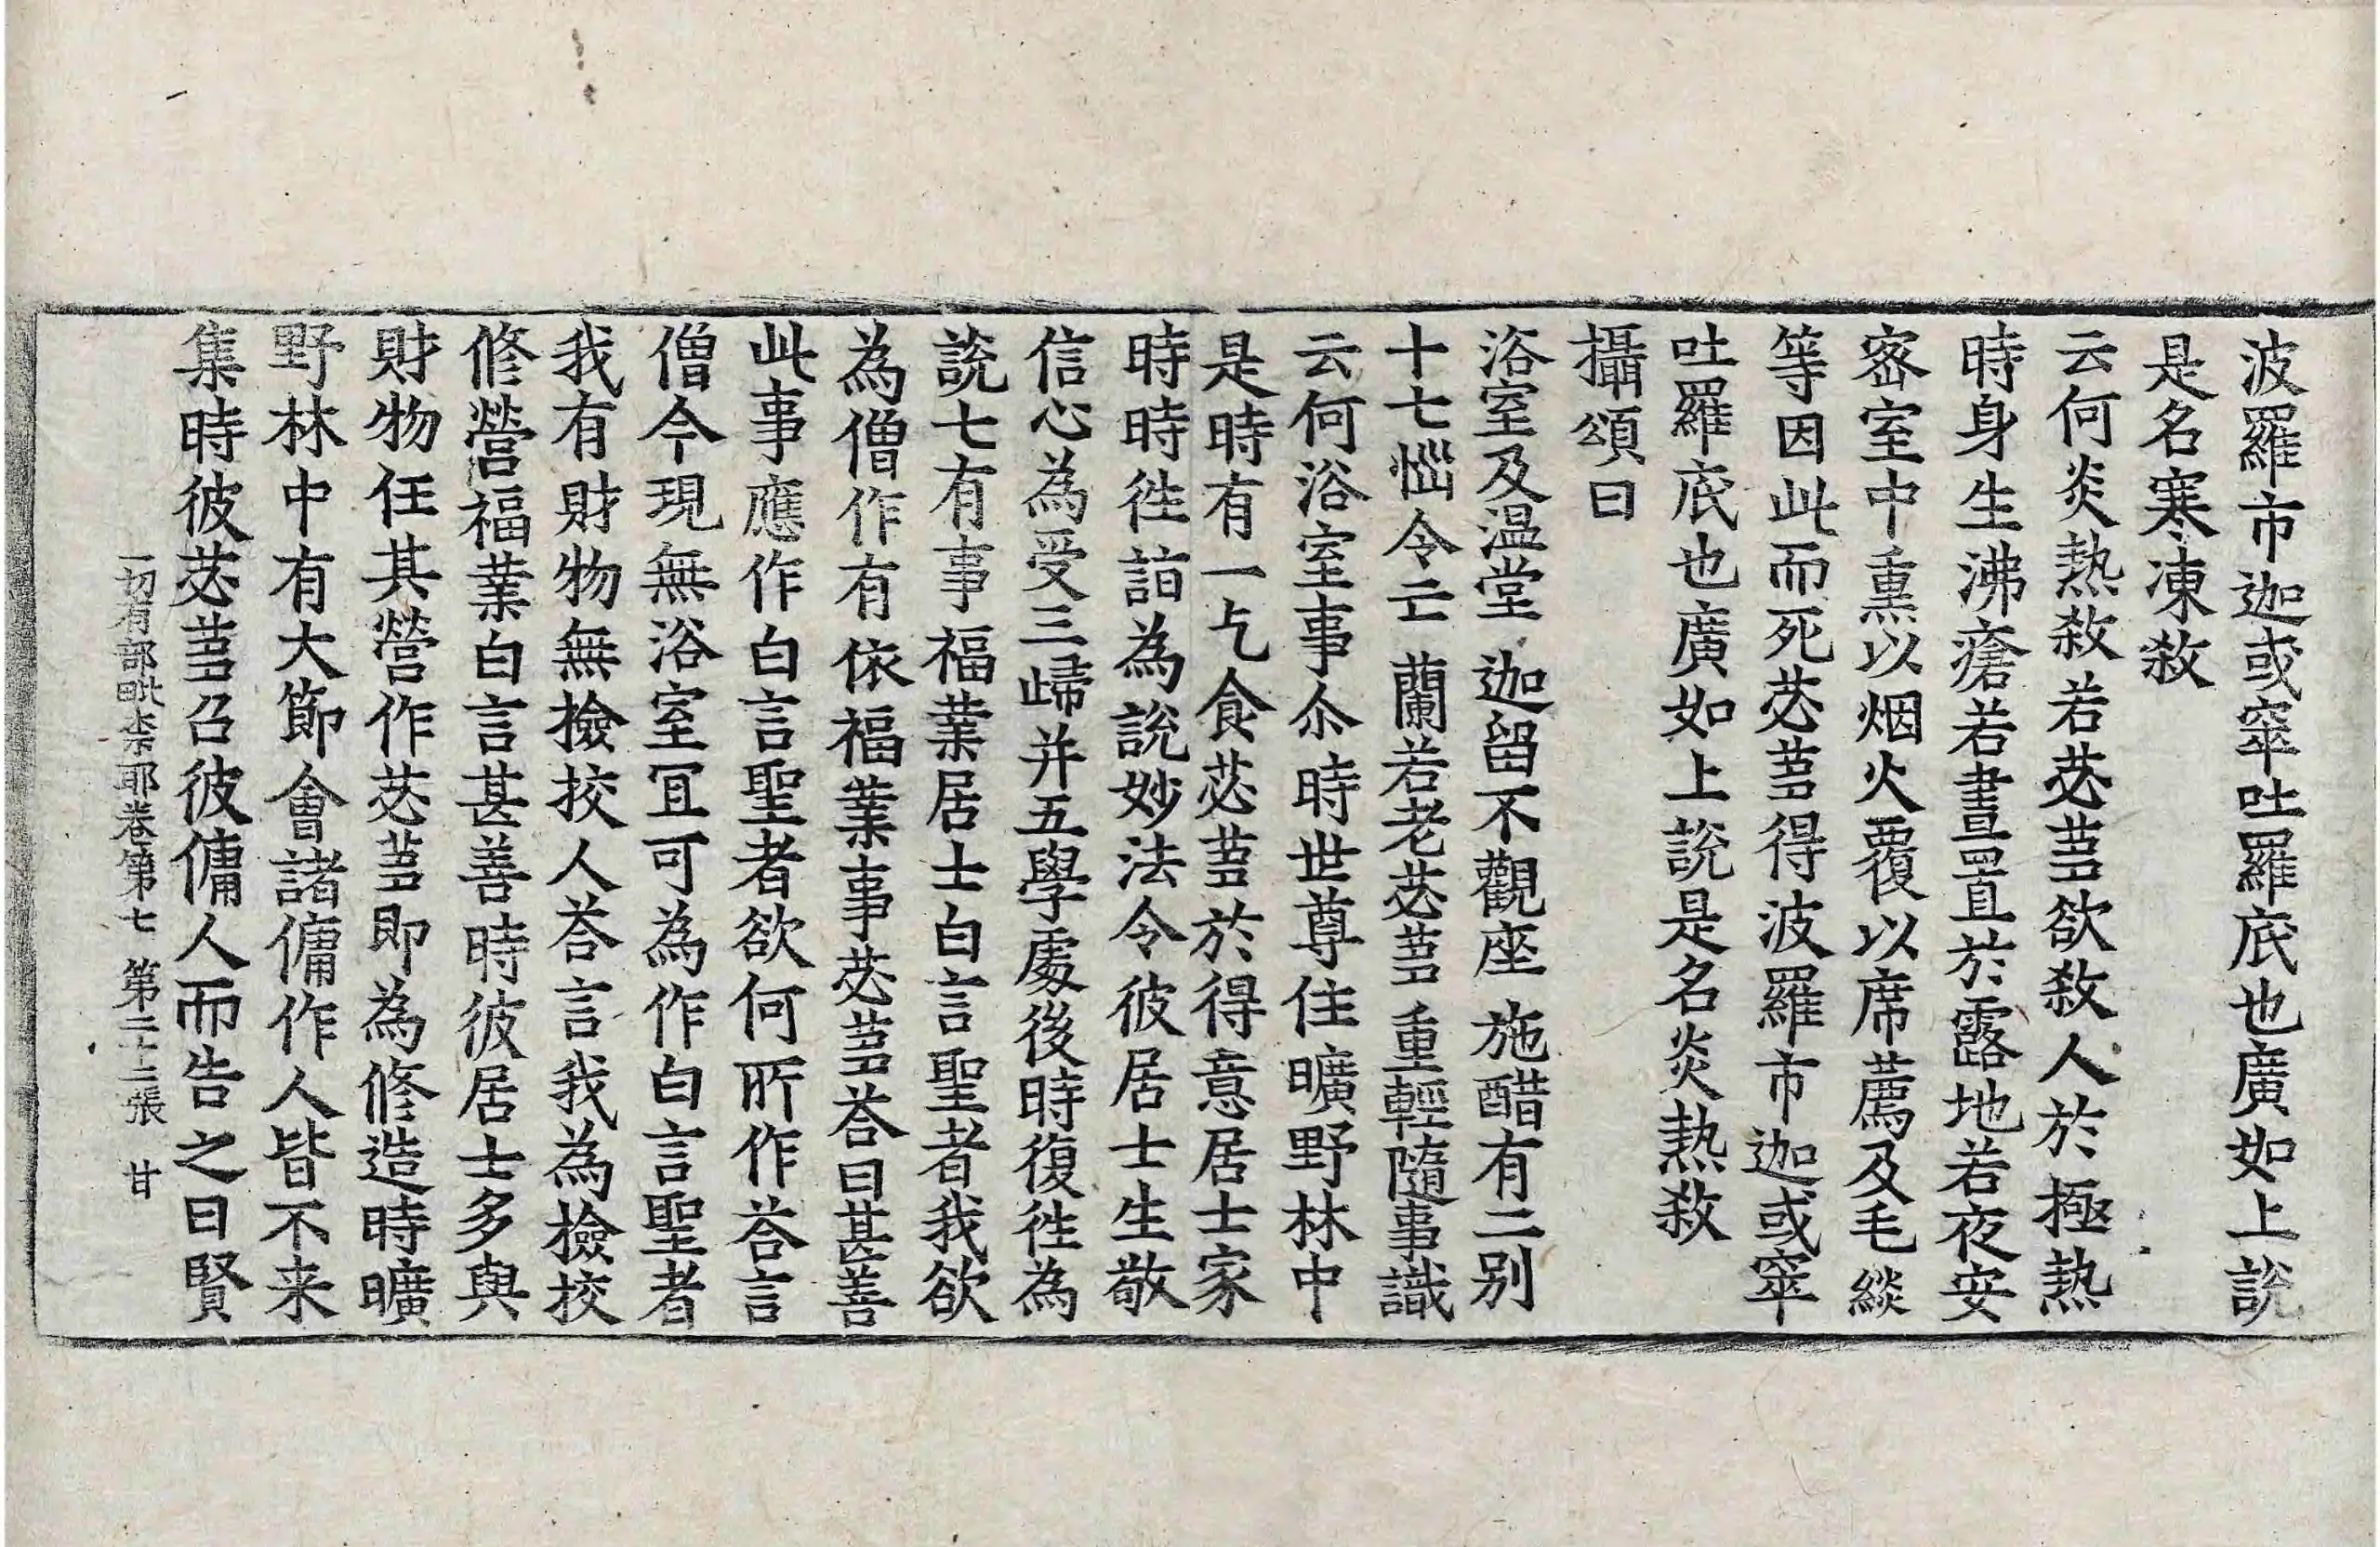 波羅市迦或窣吐羅底也廣如上說
是名寒凍敎
云何炎熱敎若苾蒭欲敎人於極熱
時身生沸瘡若晝置於露地若夜安
宻室中熏以烟火覆以席薦及毛緂
等因此而死苾蒭得波羅市迦或窣
吐羅底也廣如上說是名炎熱敎
攝頌曰
浴室及温堂 迦留不觀座 施醋有二別
十七惱令亡 蘭若老苾蒭 重輕隨事識
云何浴室事尒時世尊住曠野林中
是時有一乞食苾蒭於得意居士家
時時徃詣為說妙法令彼居士生敬
信心為受三歸并五學處後時復徃為
說七有事福業居士白言聖者我欲
為僧作有依福業事苾蒭荅曰甚善
此事應作白言聖者欲何所作荅言
僧今現無浴室冝可為作白言聖者
我有財物無撿挍人荅言我為撿挍
修營福業白言甚善時彼居士多與
財物任其營作苾蒭即為修造時曠
野林中有大節會諸傭作人皆不来
集時彼苾蒭召彼傭人而告之曰賢
一切有部毗柰耶卷第七 第二十二張 甘